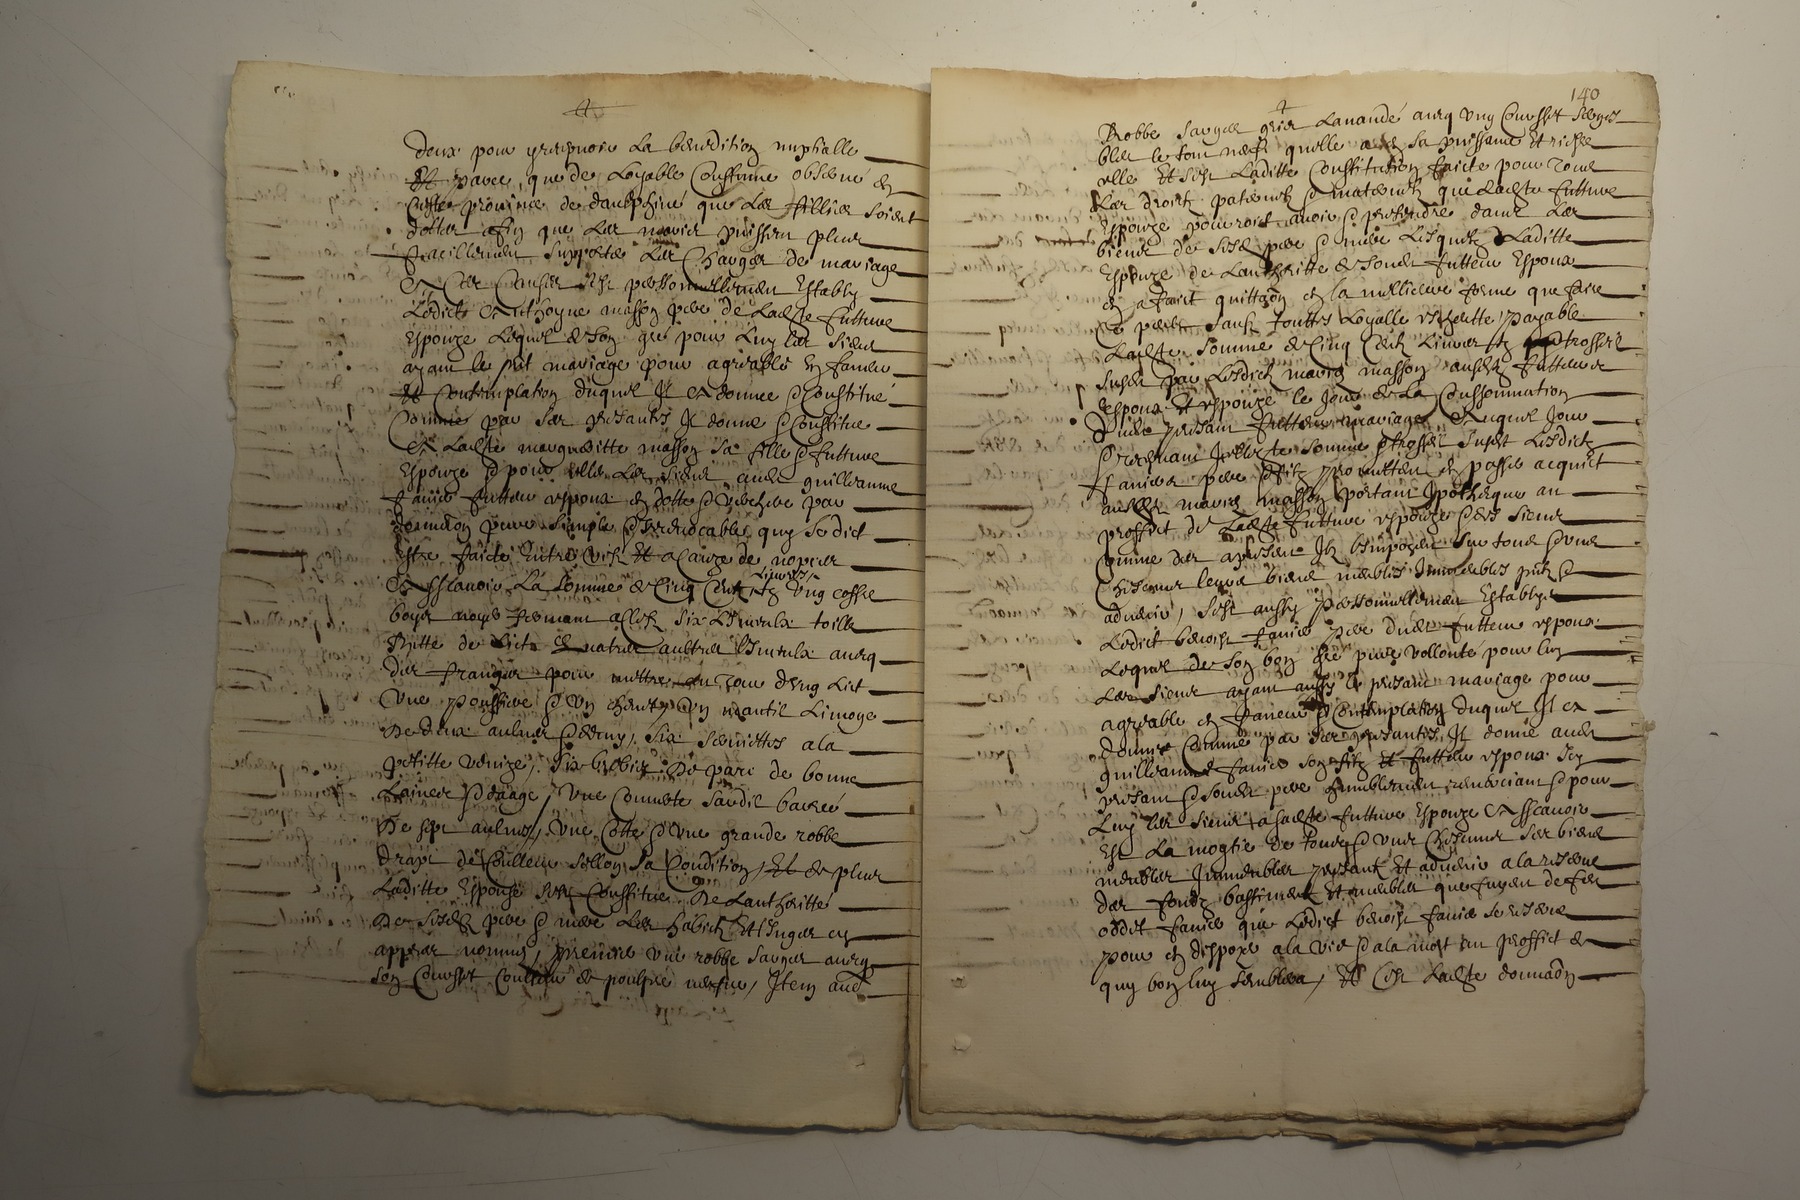 deux pour recepvoir La benedition nuptialle
Et parce, que de Loyable Coustume observé en
ceste province de dauphiné que Les fillies soient
dottes afin que Les maries puissent plus
facillement supporte Les Charges de mariage
A Ces Causes sest personnellement Estably
Ledict Anthoyne masson pere de Ladte future
Espouze Lequel de son gré pour Luy les siens
ayant le pnt mariage pour agreable en faveur
Et Contemplation duquel Il a donne & Constitué
Comme par ses presantes Il donne & Constitue
A Ladte margueritte masson sa fille & future
Espouze & pour elle Les siens aude guilleaume
favier futteur espoux en dotte & verchere par
donnation pure simple & Irrevocable quy se dict
Estre faicte Entre vifz Et a Cauze de nopces
Assçavoir La somme de Cinq Centz Livres, Ung coffre
boys noyer fermant a clefz six Linseulx toille
Ritte de Lict & quatres aultres Linseulx avecq
des franges pour mettre au tour dung Lict
Une poussiere & Un chevet, Un mantil Limoge
De deux aulnes & demy, six serviettes a la
petitte venize, six brebis De parc de bonne
Laines & daage, Une Couverte sardit barree
De sept aulnes, Une Cotte & Une grande robbe
drapt de Coulleur sellon sa Condition, Et de plus
Laditte Espouze sest Constitue De Lauthoritte
De sesdz pere & mere Les habitz Et linges cy
appres nommes, premiere une robbe sarges avecq
son Corsset Coulleur de poulpre neufve, Item une
140
Robbe sarges gris Lavandé avecq ung Corsset sembla
bles le tout neufz quelle a de sa puissance Et riche
elle Et sest Laditte Constitution faicte pour tous
Les droictz paternelz & maternelz que Ladte future
Espouze pourroict avoir & prettendre dans Les
biens de sesdz pere & mere Lesquelz Laditte
Espouze de Lauthoritte de sondt futteur Espoux
en a faict quittance en la meillieure forme que faire
se peult sauf touttes Loyalle escheutte, payable
Ladte somme de Cinq Centz Livres & trossel
susdt par Lesdictz maries masson ausdz futteurs
espoux Et espouze le Jour de La Conssommation
Dudt presant futteur mariage Auquel Jour
& recepvant Icelle dte somme & trossel susdt Lesdictz
favier pere & filz promettent en passer acquict
ausdz maries masson portant Ipotheque au
proffict de Ladte future espouze & des siens
comme des a presant Ilz Limpozent sur tous & uns
Chescuns leurs biens meubles Immeubles pntz &
advenir, sest aussy personnellement Estably
Ledict benoist favier pere dudt futteur espoux
Lequel de son bon gré pure vollonte pour Luy
Les siens ayant aussy le presant mariage pour
agreable en faveur & Contemplation duquel Il a
donne Comme par ses presantes Il donne aude
guilleaume favier son filz Et futteur espoux Icy
presant & sondt pere humblement remerciant & pour
Luy les siens a Ladte future Espouze Assçavoir
Est La moytie De tous & uns Chescuns ses biens
meubles Immeubles presantz Et advenir a la reserve
des fondz bastiments Et meubles que furent de feu
oddet favier que Ledict benoist favier se reserve
pour en dispozer a la vie & a la mort au proffict de
quy bon luy semblera, Et Cest Ladte donnaon